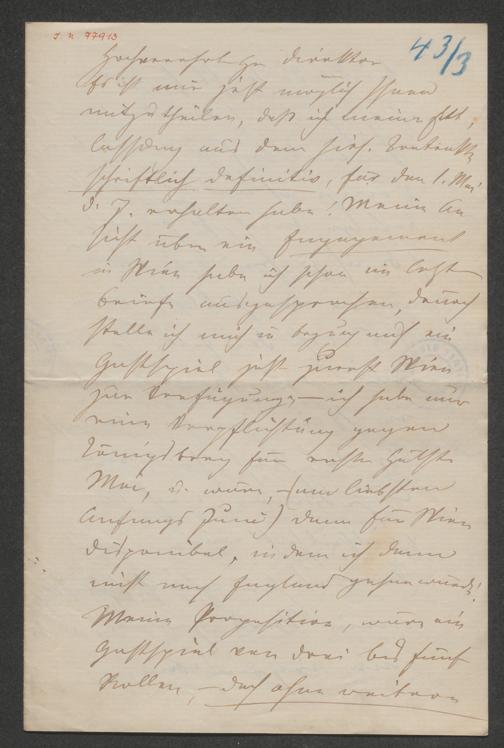 J. N. 77913
43/3
Hochverehrter Hr Direktor
Es ist mir jetzt möglich Ihnen
mitzutheilen, daß ich meine Ent-
lassung aus dem hies. Contrakte
schriftlich definitiv, für den 1. Mai
d. J. erhalten habe! Meine An
sicht über ein Engagement
in Wien habe ich schon im letzt
Briefe ausgesprochen, danach
stelle ich mich in bezug auf ein
Gastspiel jetzt zuerst Wien
zur Verfügung – ich habe nur
eine Verpflichtung gegen
Königsberg für erste Hälfte
Mai, u. wäre, (am liebsten
Anfangs Juni) dann für Wien
disponibel, indem ich dann
nicht nach England gehen würde!
Meine Proposition, wäre ein
Gastspiel von drei bis fünf
Rollen, – doch ohne weitere